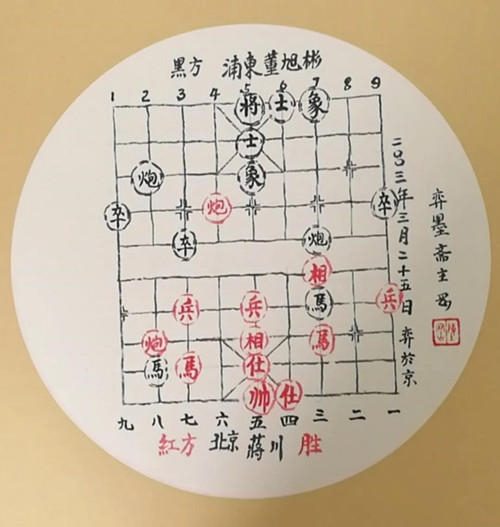 黑方 浦東董旭彬
1 2 3 4 5 6 7 8 9
将 士 象
士
炮 象
卒 炮 卒
卒 炮
相
兵 兵 馬 兵
炮 相 馬
馬 馬 仕
帅 仕
九 八 七 六 五 四 三 二 一
紅方 北京 蔣川 胜
二〇〇三年三月二十五日 弈於京
弈墨斋主